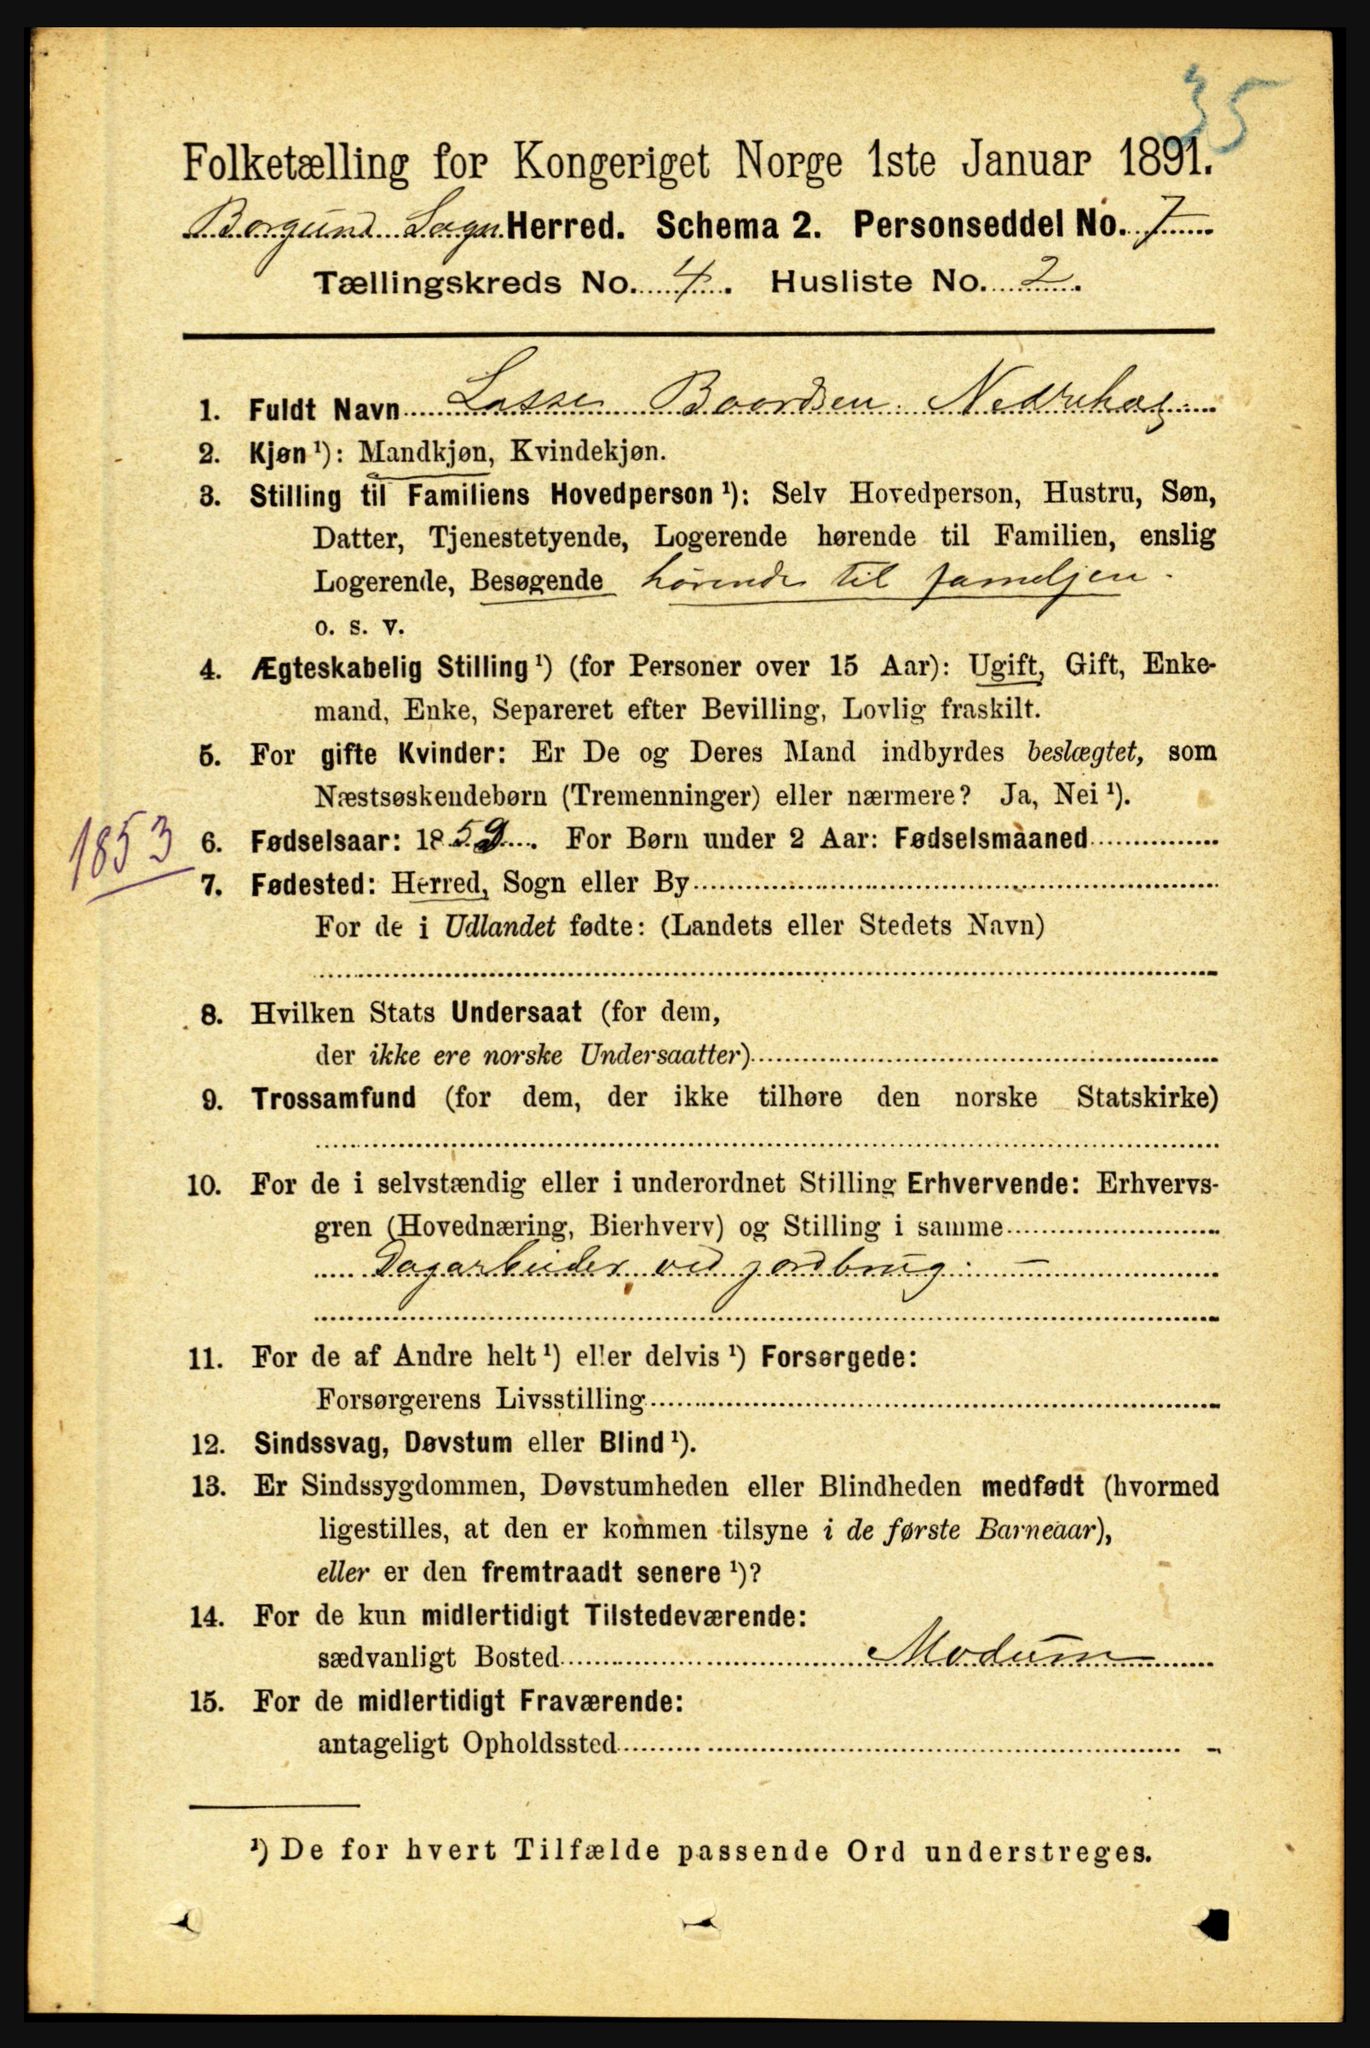 35
Folketælling for Kongeriget Norge 1ste Januar 1891.
Borgund Sogn Herred. Schema 2. Personseddel No. 7
Tællingskreds No. 4. Husliste No. 2.
1. Fuldt Navn Lasse Baardsen Nedrehæg
2. Kjøn ¹): Mandkjøn, Kvindekjøn.
3. Stilling til Familiens Hovedperson ¹): Selv Hovedperson, Hustru, Søn,
Datter, Tjenestetyende, Logerende hørende til Familien, enslig
Logerende, Besøgende hørende til familjen.
o. s. v.
4. Ægteskabelig Stilling ¹) (for Personer over 15 Aar): Ugift, Gift, Enke-
mand, Enke, Separeret efter Bevilling, Lovlig fraskilt.
5. For gifte Kvinder: Er De og Deres Mand indbyrdes beslægtet, som
Næstsøskendebørn (Tremenninger) eller nærmere? Ja, Nei ¹).
1853
6. Fødselsaar: 1859. For Børn under 2 Aar: Fødselsmaaned
7. Fødested: Herred, Sogn eller By
For de i Udlandet fødte: (Landets eller Stedets Navn)
8. Hvilken Stats Undersaat (for dem,
der ikke ere norske Undersaatter)
9. Trossamfund (for dem, der ikke tilhøre den norske Statskirke)
10. For de i selvstændig eller i underordnet Stilling Erhvervende: Erhvervs-
gren (Hovednæring, Bierhverv) og Stilling i samme
Dagarbeider ved jordbrug. —
11. For de af Andre helt ¹) eller delvis ¹) Forsørgede:
Forsørgerens Livsstilling
12. Sindssvag, Døvstum eller Blind ¹).
13. Er Sindssygdommen, Døvstumheden eller Blindheden medfødt (hvormed
ligestilles, at den er kommen tilsyne i de første Barneaar),
eller er den fremtraadt senere ¹)?
14. For de kun midlertidigt Tilstedeværende:
sædvanligt Bosted Modum
15. For de midlertidigt Fraværende:
antageligt Opholdssted
¹) De for hvert Tilfælde passende Ord understreges.